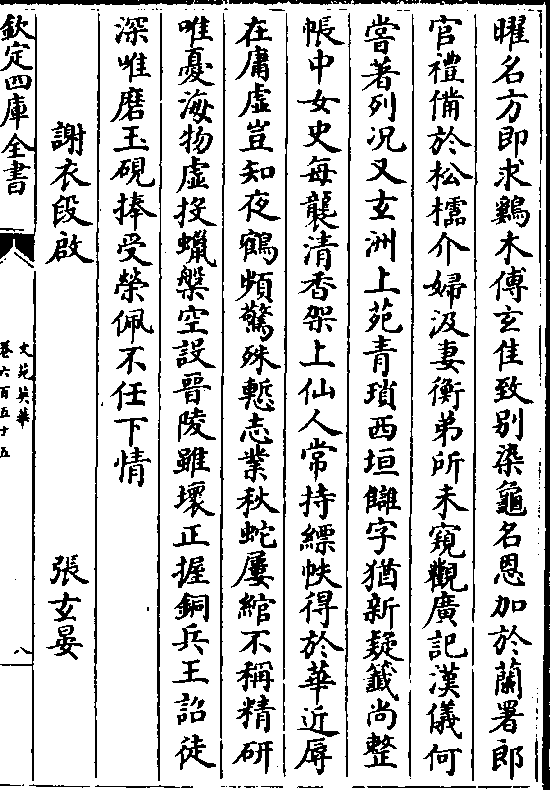 曜名方即求鷄木傅玄佳致别染龜名恩加於蘭署郎
官禮備於松櫺介婦汲妻衡弟所未窺觀廣記漢儀何
嘗著列况又玄洲上苑青瑣西垣讎字猶新疑籖尚整
帳中女史每襲清香架上仙人常持縹帙得於華近辱
在庸虛豈知夜鶴頻驚殊慙志業秋蛇屢綰不稱精研
唯憂海物虛投蠟槃空設晉陵雖壞正握銅兵王詔徒
深唯磨玉硯捧受榮佩不任下情
謝衣段啟 張玄晏
欽定四庫全書
文苑英華
卷六百五十五
八